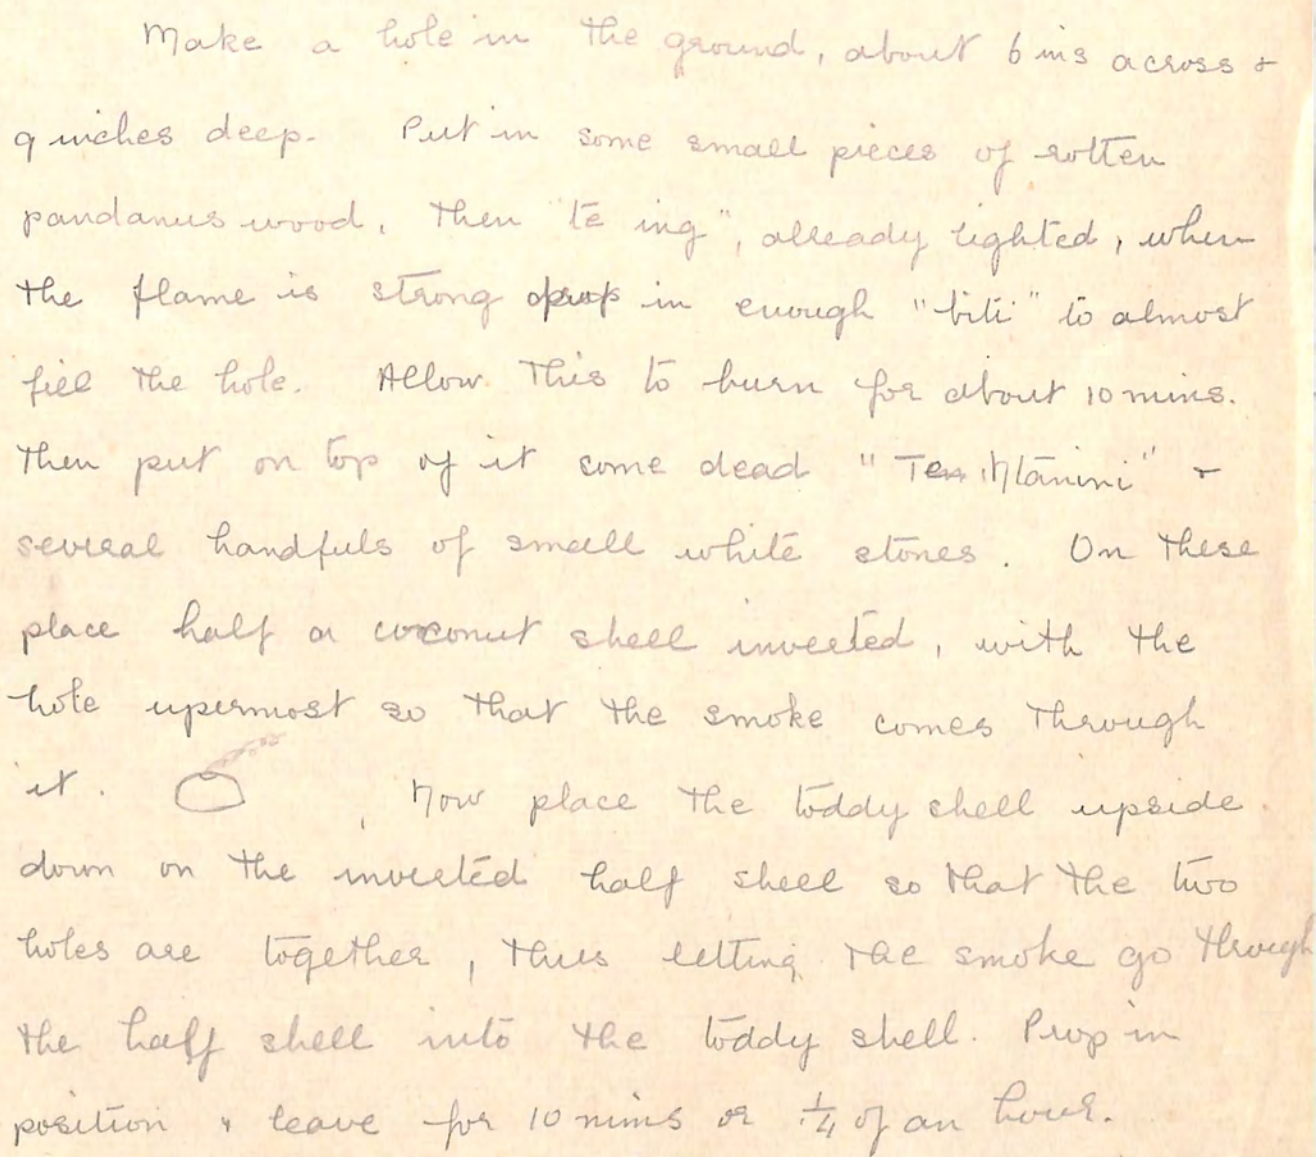 Make a hole in the ground, about 6 ins across &
9 inches deep. Put in some small pieces of rotten
pandanus wood. Then "te ing", already lighted, when
the flame is strong drop in enough "biti" to almost
fill the hole. Allow this to burn for about 10 mins.
Then put on top of it some dead "Te Ntanini" &
several handfuls of small white stones. On these
place half a coconut shell inverted, with the
hole upermost so that the smoke comes through
it. Now place the toddy shell upside
down on the inverted half shell so that the two
holes are together, thus letting the smoke go through
the half shell into the toddy shell. Prop in
position & leave for 10 mins or 1/4 of an hour.